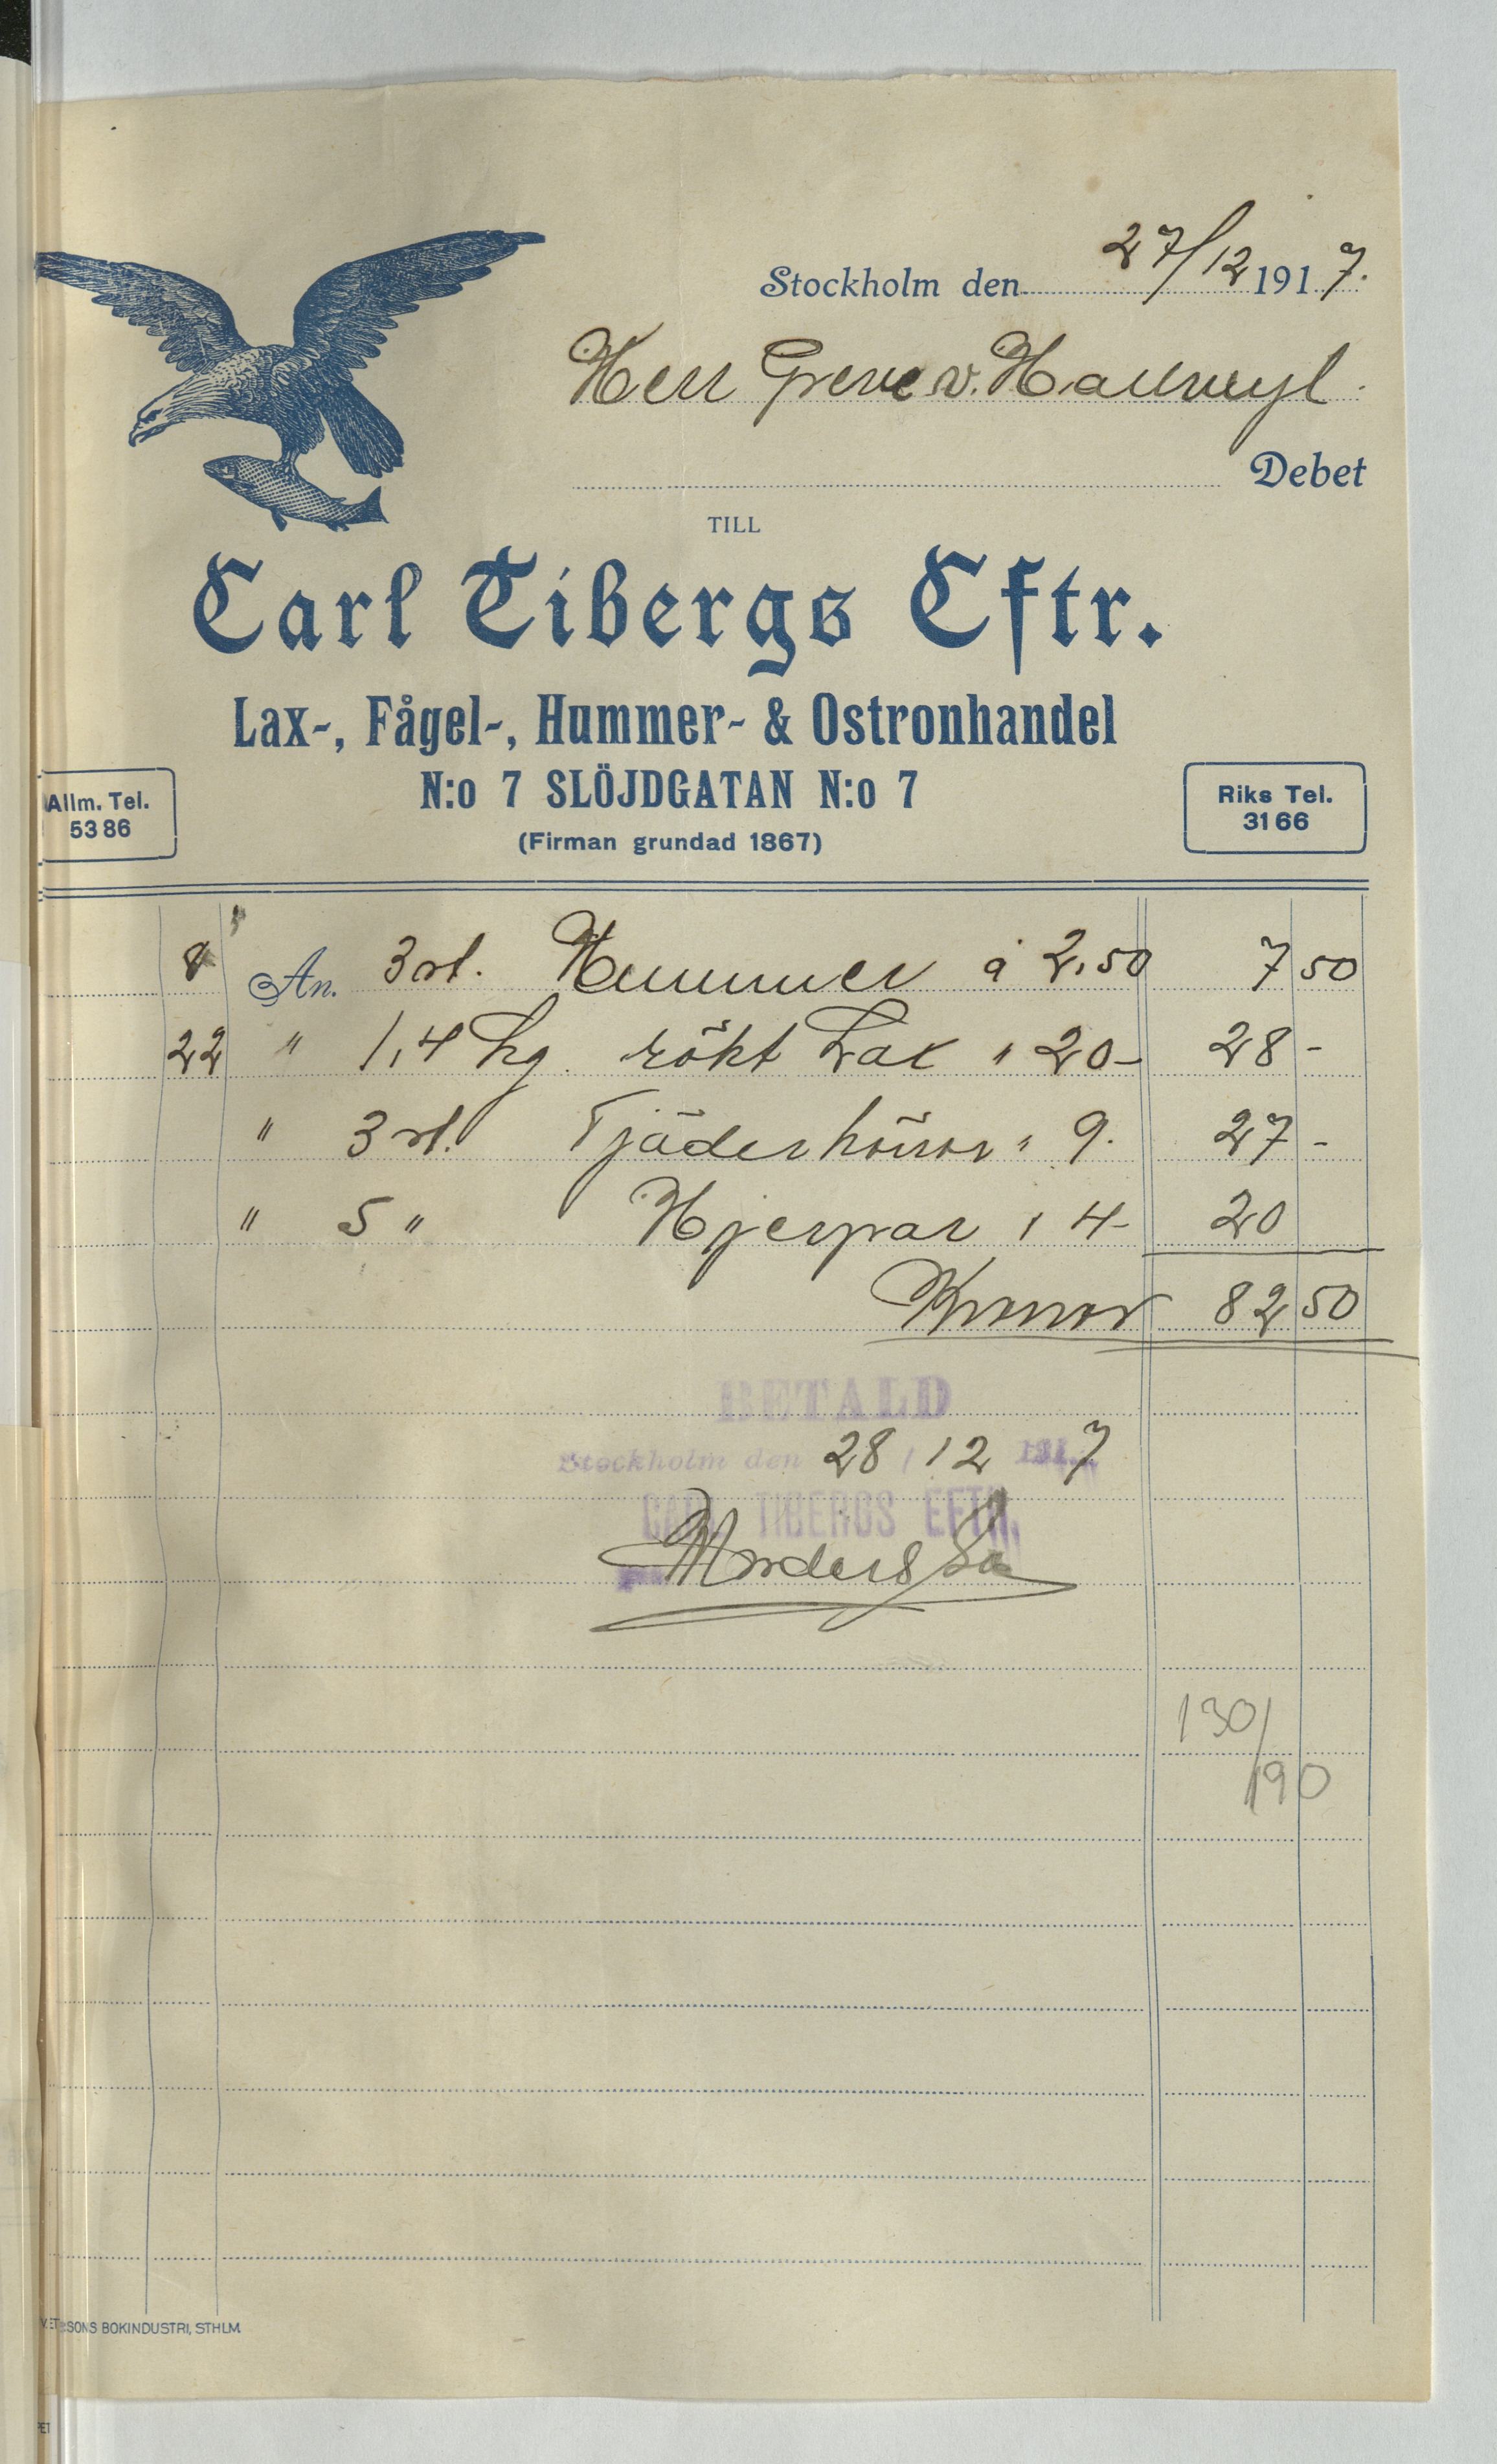 Stockholm den 27/12 1917.
Herr Greve v. Hallwyl
Debet
TILL
Carl Tibergs Eftr.
Lax-, Fågel-, Hummer- & Ostronhandel
N:o 7 SLÖJDGATAN N:o 7
(Firman grundad 1867)
Allm. Tel.
5386
Riks Tel.
3166
8 An. 3 st. Hummer à 2,50 7 50
22 " 1,4 kg. rökt Lax " 20- 28 -
" 3 st. Tjäderhönor " 9. 27 -
" 5 " Hjerpar " 4- 20
Kronor 82 50
BETALD
Stockholm den 28/12 1917
CARL TIBERGS EFTR.
130/
190
SONS BOKINDUSTRI, STHLM